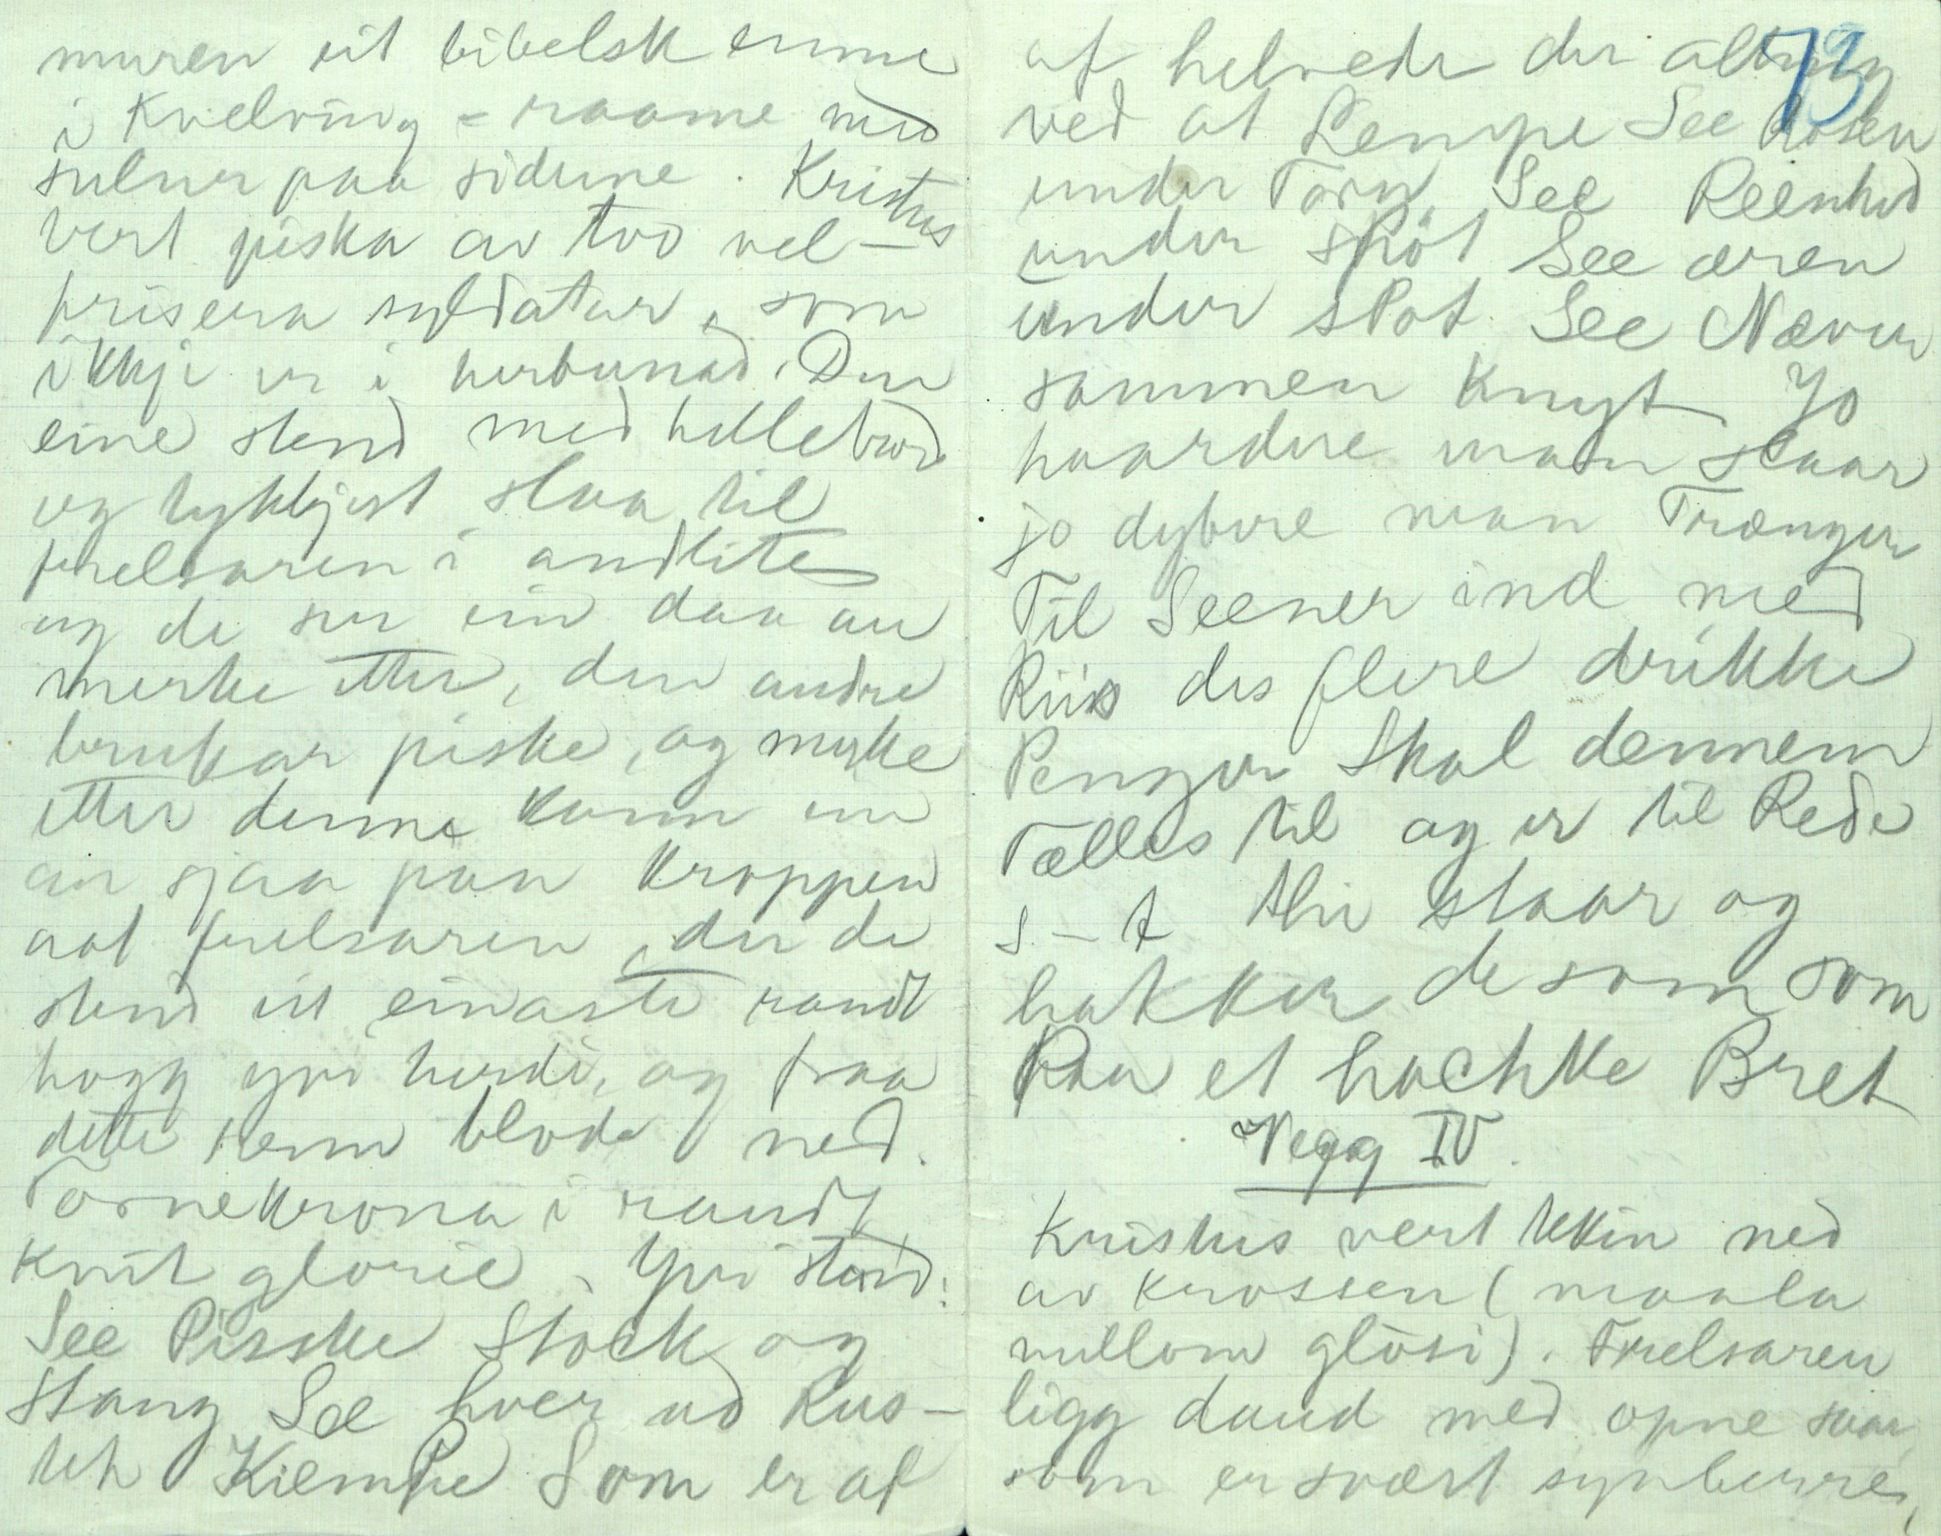 muren eit bibelsk emne
i kvelving = raame med
sulur paa sidune. Kristus
vert piska av tvo vel-
frisera suldatar, som
ikkje er i herbunad. Den
eine stend med hellebard
og lykkjest slaa til
frelsaren i andlite
og de ser ein daa au
merke etter, den andre
brukar piske, og merke
etter denne kann ein
au sjaa paa kroppen
aat frelsaren, der de
stend eit einaste raudt
hogg yvi herdi, og fraa
dette renn blode ned.
Tornekrona i raudt
kvit glorie. Yvi stend:
See Pisske Stock og
Stang See hver ud Rus-
tet Kiempe Som er af
73
af helvede der alting
ved at Lempe See Rosen
under Torn See Reenhed
under skøt See æren
under spot See Næven
sammen knyt Jo
haardere man slaar
jo dybere man Trænger
Til Seener ind med
Riis des flere drikke
Penger Skal dennem
Tælles til og er til Rede
s - t thi slaar og
hakker de som som
Paa et hachke Bret
Vegg IV.
Kristus vert tekin ned
av krossen (maala
millom glosi). Frelsaren
ligg daud med opne saar,
som er svært synberre,